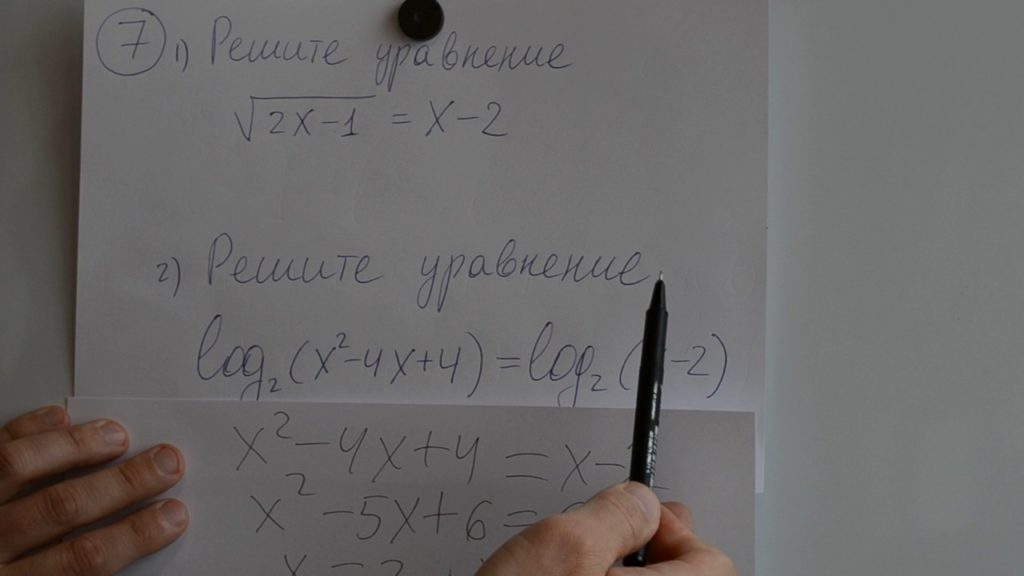 7 1) Решите уравнение
√2x-1 = x-2
2) Решите уравнение
log₂(x²-4x+4)=log₂( -2)
x²-4x+4=x-
x²-5x+6=